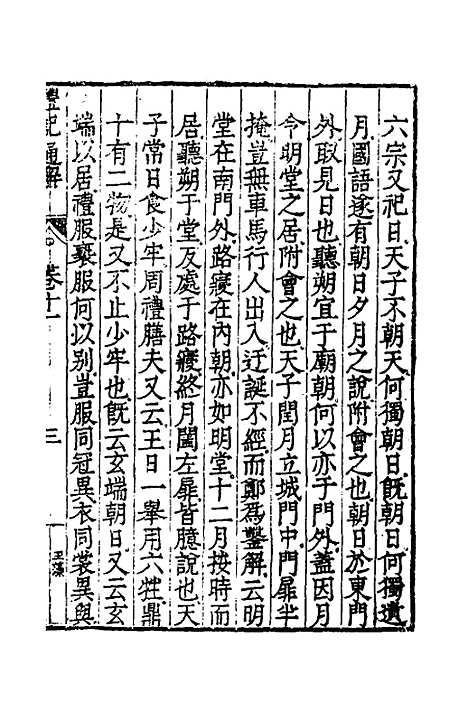 六宗又祀日天子不朝天何獨朝日旣朝日何獨遺
月國語遂有朝日夕月之說附會之也朝日於東門
外取見日也聽朔宜于廟朝何以亦于門外蓋因月
令明堂之居附會之也天子閏月立城門中門扉半
掩豈無車馬行人出入迂誕不經而鄭爲鑿解云明
堂在南門外路寢在內朝亦如明堂十二月按時而
居聽朔于堂反處于路寢終月闔左扉皆臆說也天
子常日食少牢周禮膳夫又云王日一舉用六牲鼎
十有二物是又不止少牢也旣云玄端朝日又云玄
端以居禮服褻服何以別豈服同冠異衣同裳異與
禮記通解
卷十一
三
玉藻